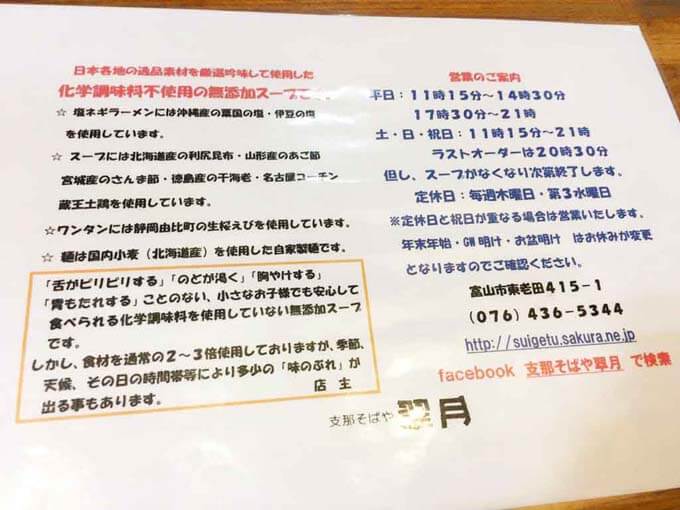 日本各地の逸品素材を厳選吟味して使用した
化学調味料不使用の無添加スープです。
☆ 塩ネギラーメンには沖縄産の粟国の塩・伊豆の塩
を使用しています。
☆ スープには北海道産の利尻昆布・山形産のあご節
宮城産のさんま節・徳島産の干海老・名古屋コーチン
蔵王土鶏を使用しています。
☆ワンタンには静岡由比町の生桜えびを使用しています。
☆ 麺は国内小麦（北海道産）を使用した自家製麺です。
「舌がピリピリする」「のどが渇く」「胸やけする」
「胃もたれする」ことのない、小さなお子様でも安心して
食べられる化学調味料を使用していない無添加スープ
です。
しかし、食材を通常の２～３倍使用しておりますが、季節、
天候、その日の時間帯等により多少の「味のぶれ」が
出る事もあります。 店 主
営業のご案内
平日：１１時１５分～１４時３０分
１７時３０分～２１時
土・日・祝日：１１時１５分～２１時
ラストオーダーは２０時３０分
但し、スープがなくなり次第終了します。
定休日：毎週木曜日・第３水曜日
※定休日と祝日が重なる場合は営業いたします。
年末年始・GW明け・お盆明け はお休みが変更
となりますのでご確認ください。
富山市東老田４１５－１
(０７６) ４３６－５３４４
http://suigetu.sakura.ne.jp
facebook 支那そばや翠月 で検索
支那そばや 翠月